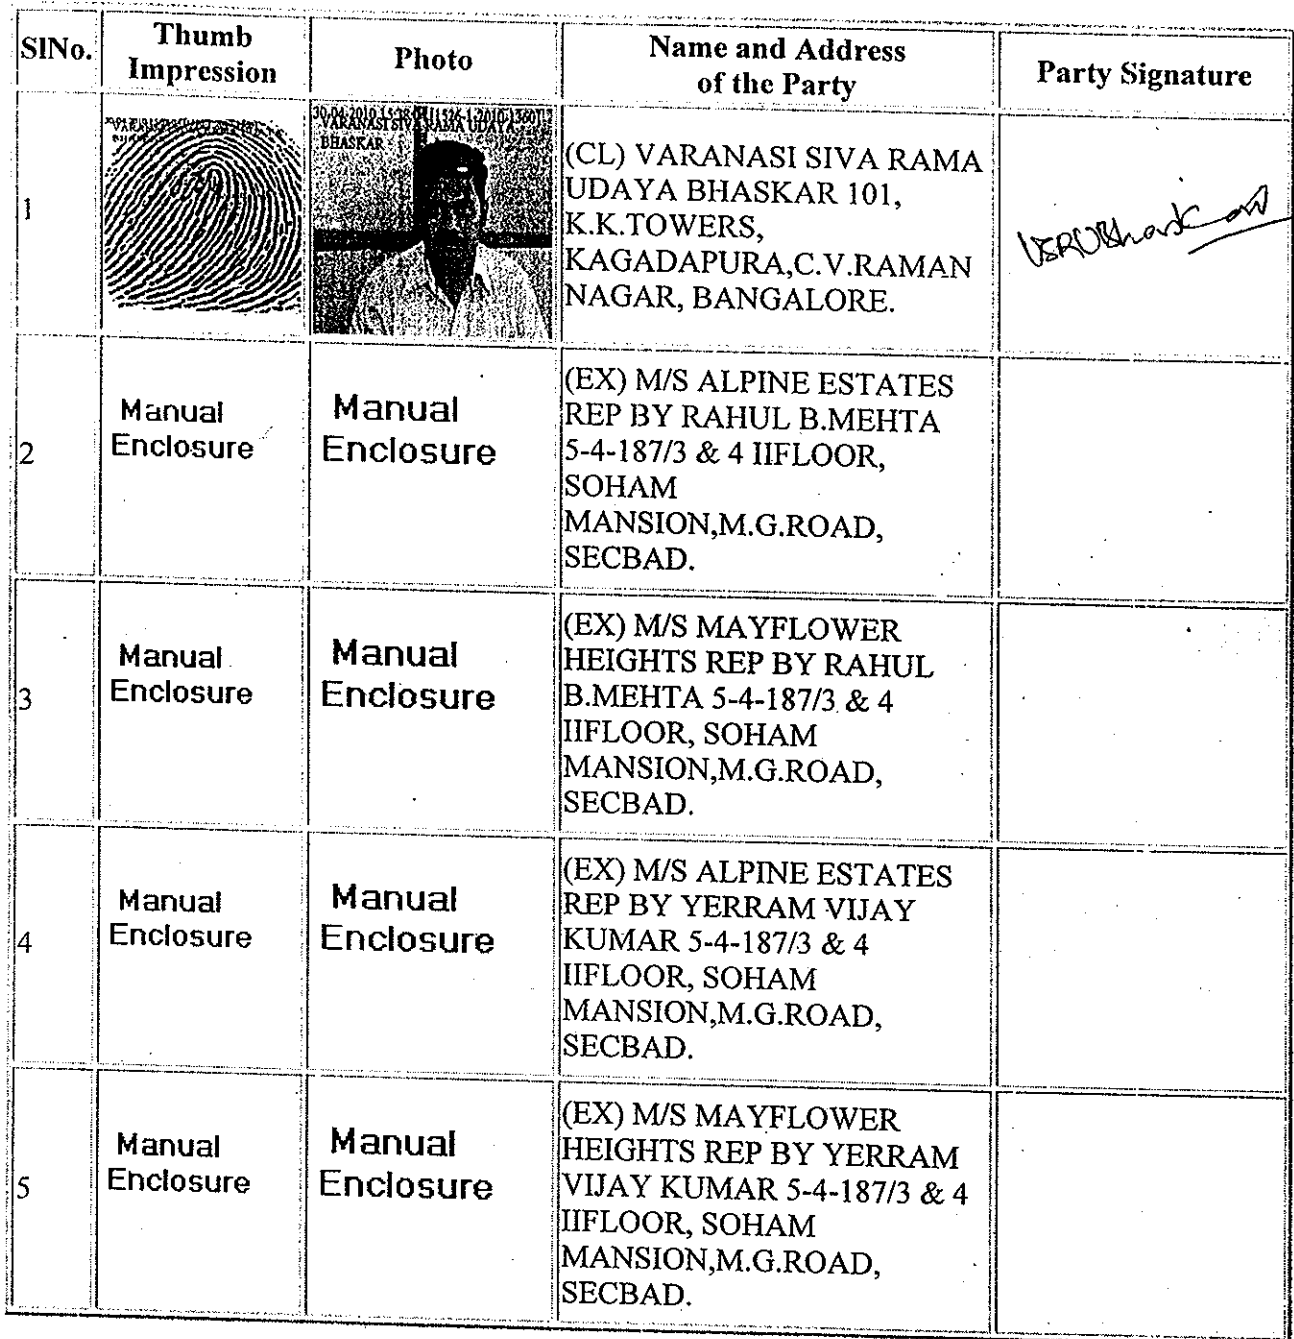 SlNo.
Thumb
Impression
Photo
Name and Address
of the Party
Party Signature
1
VARANASI SIVA RAMA UDAYA
BHASKAR
(CL) VARANASI SIVA RAMA
UDAYA BHASKAR 101,
K.K.TOWERS,
KAGADAPURA,C.V.RAMAN
NAGAR, BANGALORE.
VSRUBhaskar
2
Manual
Enclosure
Manual
Enclosure
(EX) M/S ALPINE ESTATES
REP BY RAHUL B.MEHTA
5-4-187/3 & 4 IIFLOOR,
SOHAM
MANSION,M.G.ROAD,
SECBAD.
3
Manual
Enclosure
Manual
Enclosure
(EX) M/S MAYFLOWER
HEIGHTS REP BY RAHUL
B.MEHTA 5-4-187/3 & 4
IIFLOOR, SOHAM
MANSION,M.G.ROAD,
SECBAD.
4
Manual
Enclosure
Manual
Enclosure
(EX) M/S ALPINE ESTATES
REP BY YERRAM VIJAY
KUMAR 5-4-187/3 & 4
IIFLOOR, SOHAM
MANSION,M.G.ROAD,
SECBAD.
5
Manual
Enclosure
Manual
Enclosure
(EX) M/S MAYFLOWER
HEIGHTS REP BY YERRAM
VIJAY KUMAR 5-4-187/3 & 4
IIFLOOR, SOHAM
MANSION,M.G.ROAD,
SECBAD.